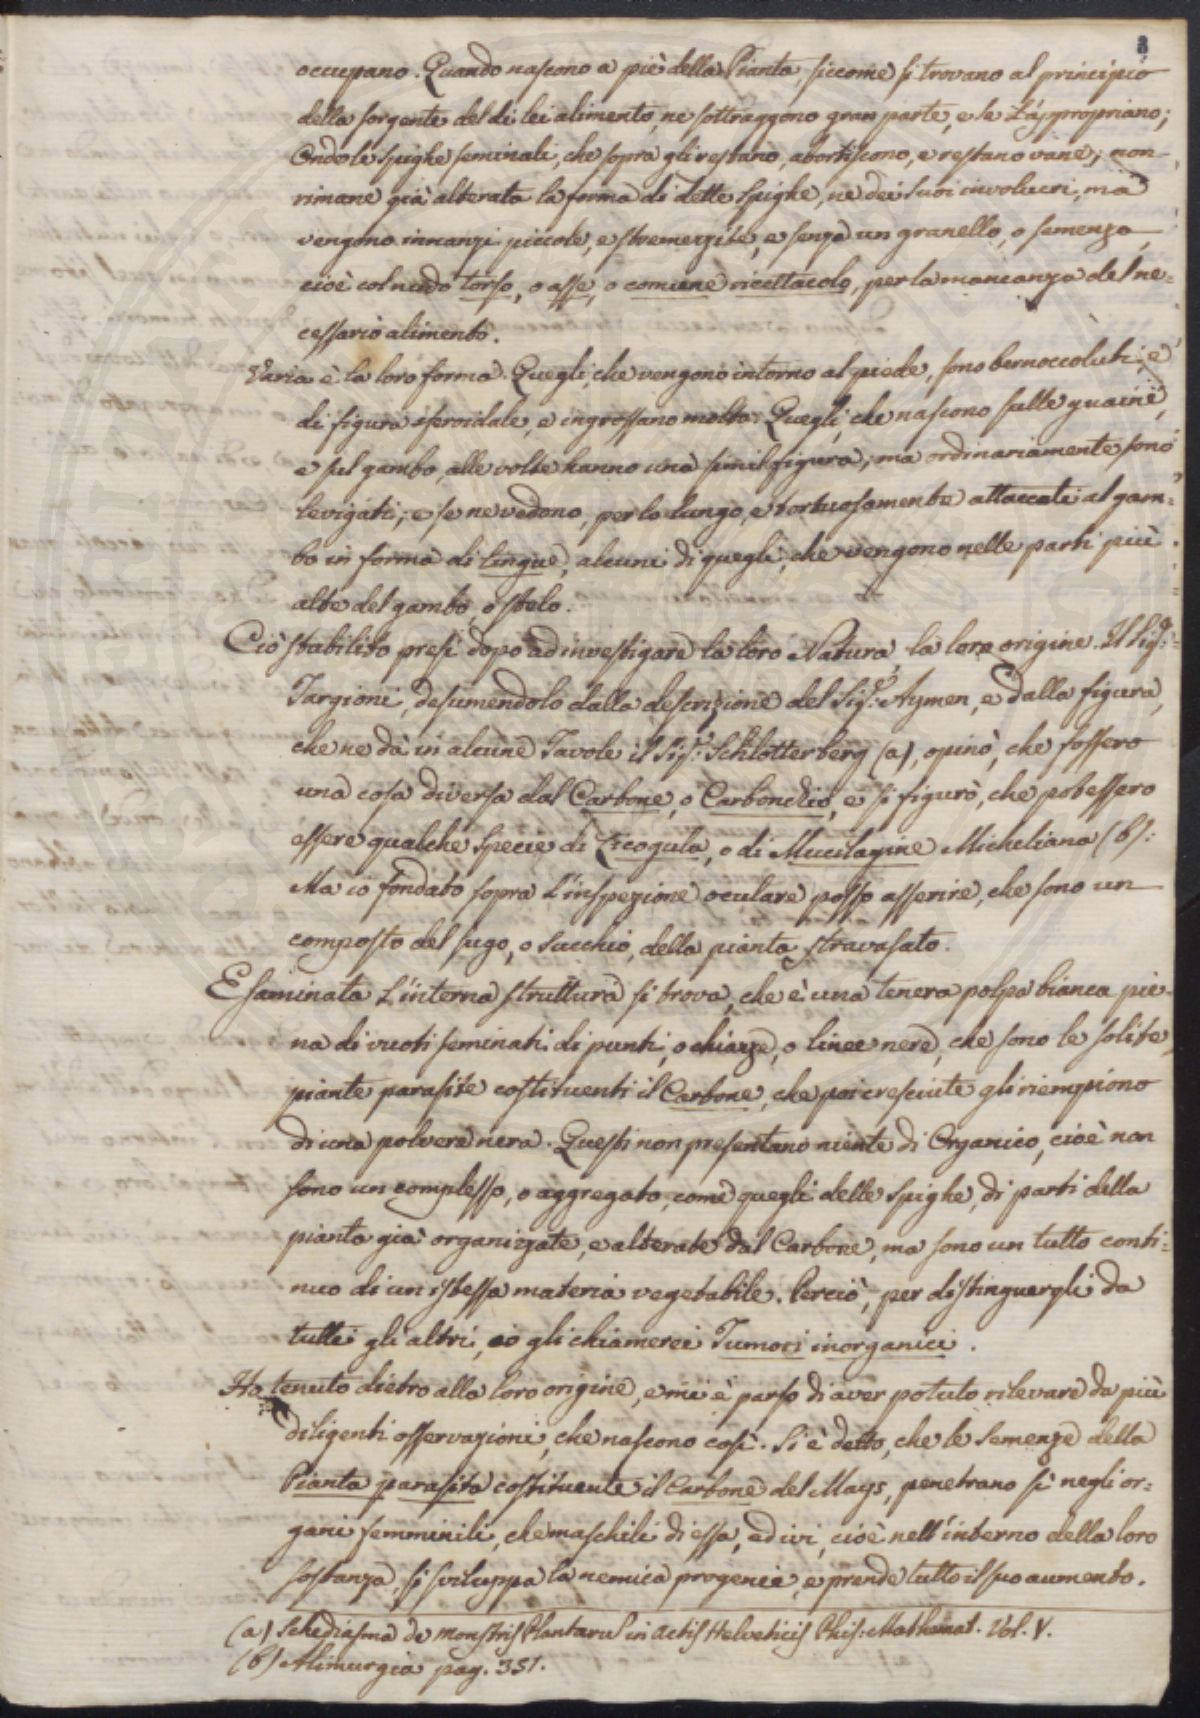 8
occupano. Quando nascono a piè della Pianta, siccome si trovano al principio
della sorgente del di lei alimento, ne sottraggono gran parte, e se l'appropriano;
Onde le spighe seminali, che sopra gli restano, abortiscono, e restano vane; non
rimane già alterata la forma di dette spighe, nè dei suoi involucri, ma
vengono innanzi piccole, e stremenzite, e senza un granello, o semenza,
cioè col nudo torso, o asse, o comune ricettacolo, per la mancanza del ne=
cessario alimento.
Varia è la loro forma. Quegli, che vengono intorno al piede, sono bernoccoluti, e
di figura sferoidale, e ingrossano molto: Quegli, che nascono sulle guaine,
e sul gambo, alle volte hanno una simil figura; ma ordinariamente sono
levigati; e se ne vedono, per lo lungo, e tortuosamente attaccati al gam=
bo in forma di lingue, alcuni di quegli, che vengono nelle parti più
alte del gambo, o stelo.
Ciò stabilito presi dopo ad investigare la loro Natura, la loro origine. Il Sig.r
Targioni, desumendolo dalla descrizione del Sig.r Aymen, e dalla figura,
che ne dà in alcune Tavole il Sig.r Schlotterberg (a), opinò, che fossero
una cosa diversa dal Carbone, o Carbonchio, e si figurò, che potessero
essere qualche specie di Licogala, o di Mucilagine Micheliana (b):
Ma io fondato sopra l'inspezione oculare posso asserire, che sono un
composto del sugo, o succhio, della pianta stravasato.
Esaminata l'interna struttura si trova, che è una tenera polpa bianca pie=
na di vuoti seminati di punti, o chiazze, o linee nere, che sono le solite
piante parasite costituenti il Carbone, che poi cresciute gli riempiono
di una polvere nera. Questi non presentano niente di Organico, cioè non
sono un complesso, o aggregato, come quegli delle spighe, di parti della
pianta già organizzate, e alterate dal Carbone, ma sono un tutto conti=
nuo di un istessa materia vegetabile. Perciò, per distinguergli da
tutti gli altri, io gli chiamerei Tumori inorganici.
Ho tenuto dietro alla loro origine, e mi è parso di aver potuto rilevare da più
diligenti osservazioni, che nascono così. Si è detto, che le semenze della
Pianta parasita costituente il Carbone del Mays, penetrano sì negli or=
gani femminili, che maschili di essa, ed ivi, cioè nell'interno della loro
sostanza, si sviluppa la nemica progenie, e prende tutto il suo aumento.
(a) Schediasma de monstris Plantarum in Actis Helveticis Phis: Mathemat. Vol. V.
(b) Alimurgia pag. 351.